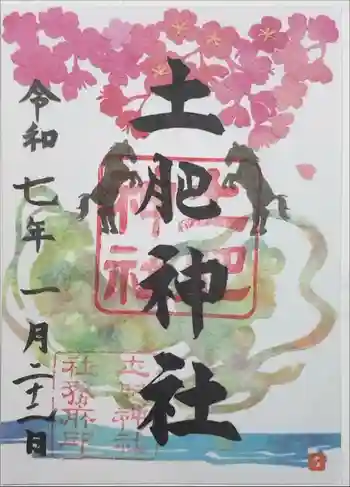 土肥神社
令和七年一月二十二日
土肥神社
土肥神社社務所印